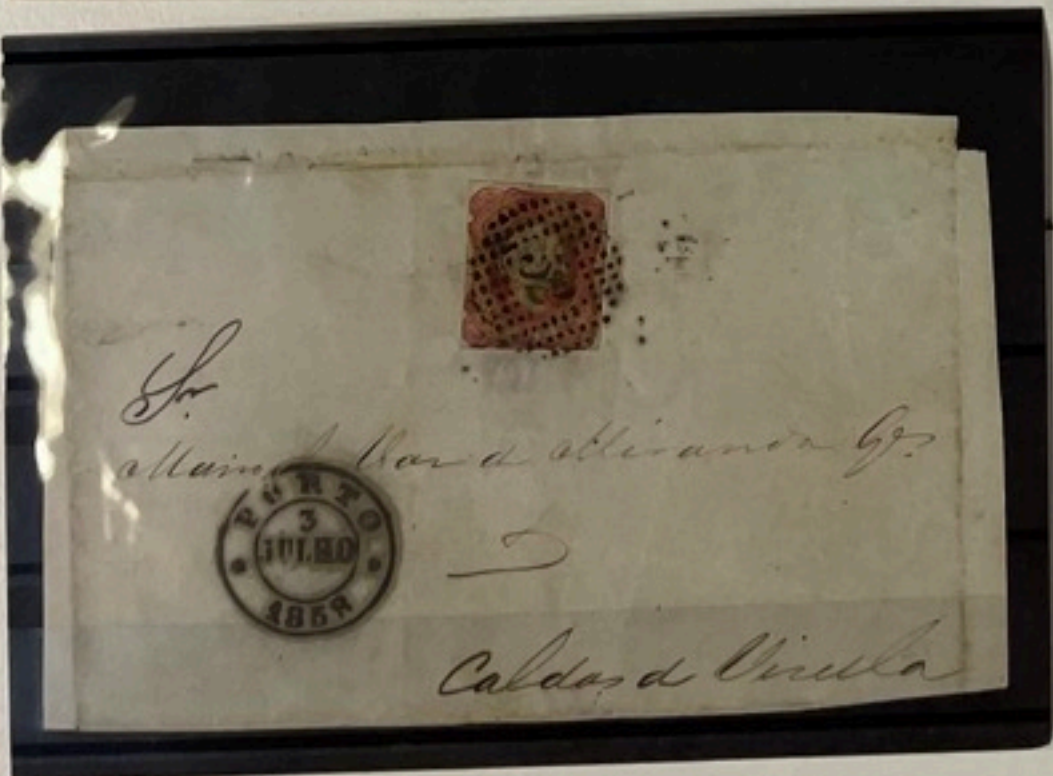 52
Sr
Manoel de Miranda Ges
PORTO
3
JULHO
1858
Caldas de Visella